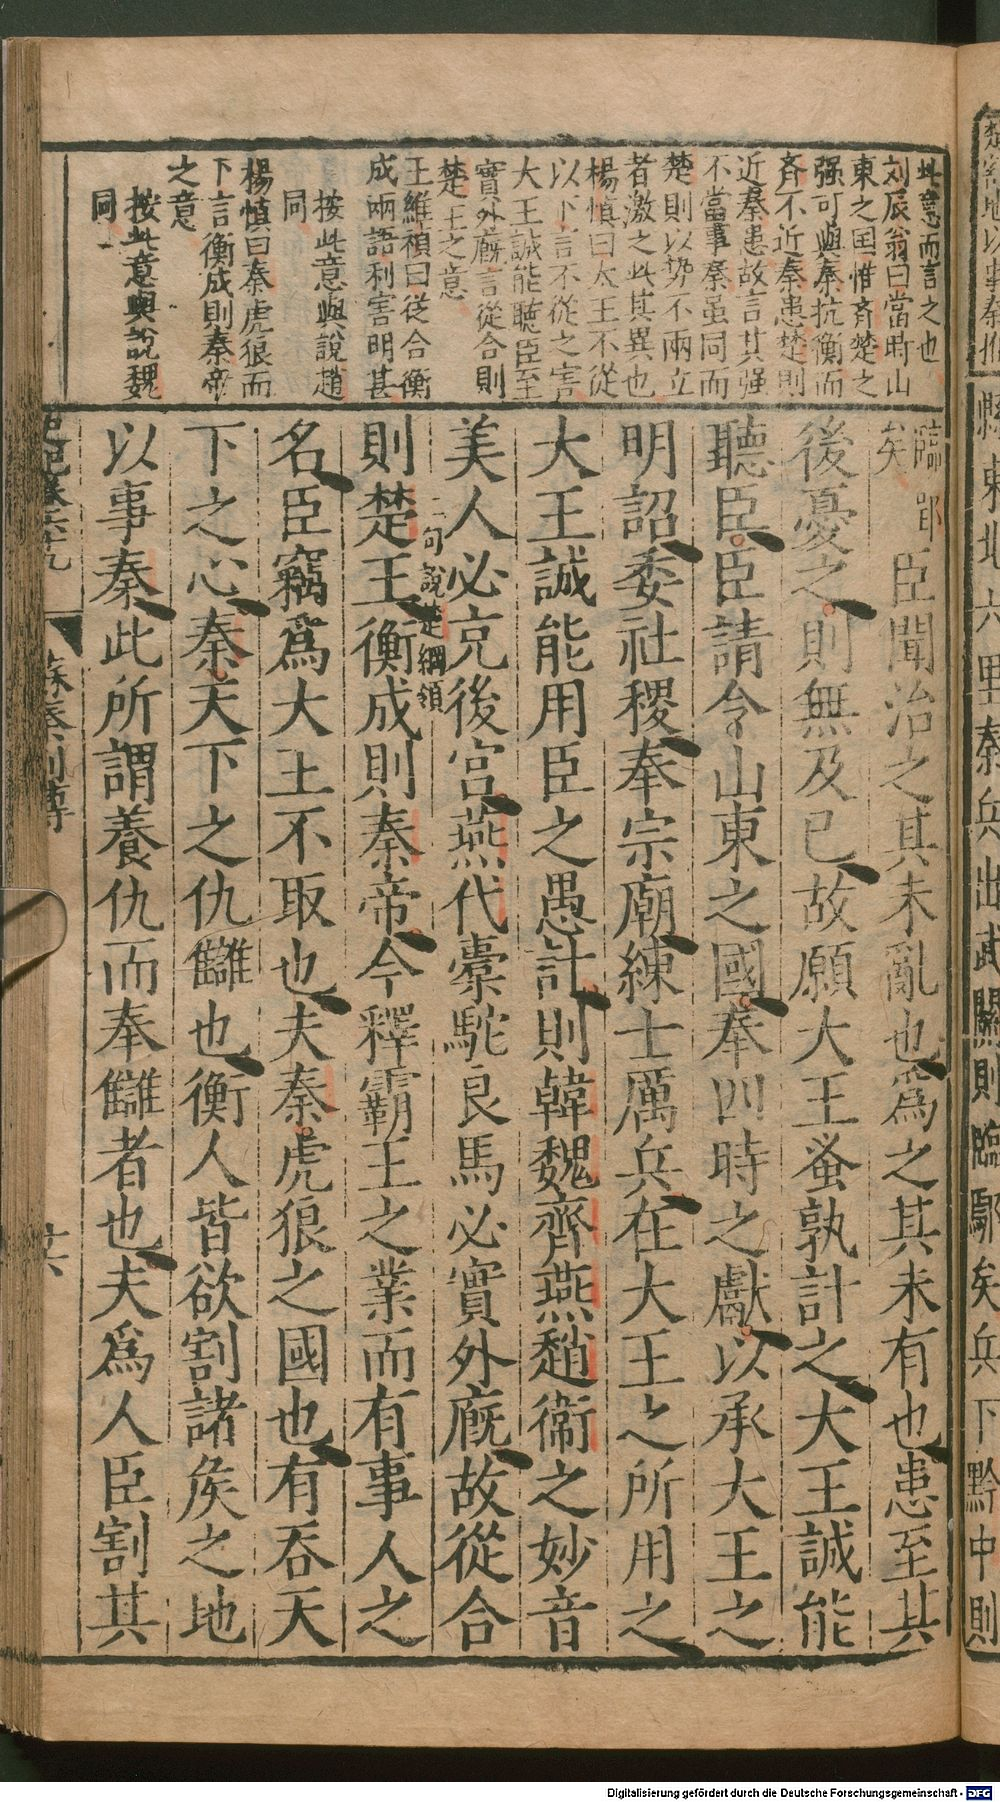 縣東北六里秦兵出武關則臨鄢矣兵下黔中則
此意而言之也
刘辰翁曰當時山
東之国惟齊楚之
强可與秦抗衡而
斉不近秦患楚則
近秦患故言其强
不當事秦虽同而
楚則以势不兩立
者激之此其異也
楊慎曰大王不從
以下言不從之害
大王誠能聴臣至
實外廐言從合則
楚王之意
王維禎曰從合衡
成兩語利害明甚
按此意與說趙
同
楊慎曰秦虎狼而
下言衡成則秦帝
之意
按此意與說魏
同
臨鄢
矣
臣聞治之其未亂也爲之其未有也患至其
後憂之則無及已故願大王蚤孰計之大王誠能
聽臣臣請令山東之國奉四時之獻以承大王之
明詔委社稷奉宗廟練士厲兵在大王之所用之
大王誠能用臣之愚計則韓魏齊燕趙衛之妙音
美人必充後宮燕代橐駝良馬必實外廐故從合
二句說楚綱領
則楚王衡成則秦帝今釋霸王之業而有事人之
名臣竊爲大王不取也夫秦虎狼之國也有吞天
下之心秦天下之仇讎也衡人皆欲割諸侯之地
以事秦此所謂養仇而奉讎者也夫爲人臣割其
史記卷六十九
蘇秦列傳
廿六
Digitalisierung gefördert durch die Deutsche Forschungsgemeinschaft - DFG